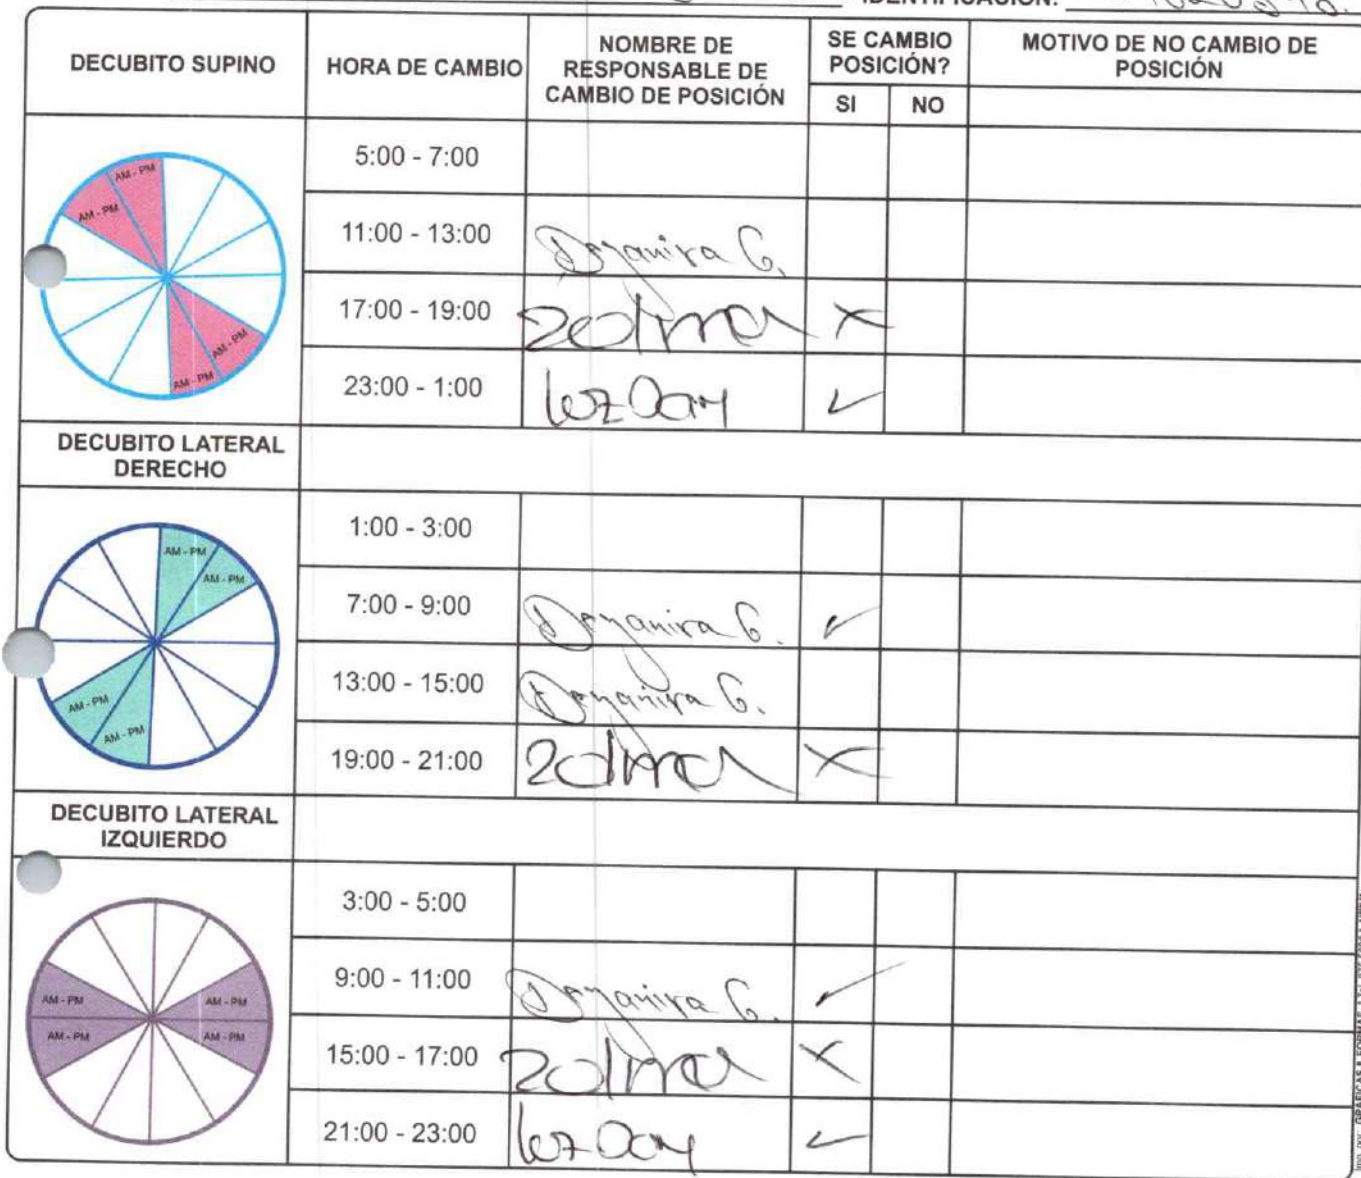 IDENTIFICACIÓN:
DECUBITO SUPINO HORA DE CAMBIO NOMBRE DE RESPONSABLE DE CAMBIO DE POSICIÓN SE CAMBIO POSICIÓN? MOTIVO DE NO CAMBIO DE POSICIÓN
SI NO
AM - PM
AM - PM
AM - PM
AM - PM
5:00 - 7:00
11:00 - 13:00 Dayanira G.
17:00 - 19:00 Zolma X
23:00 - 1:00 ✓
DECUBITO LATERAL DERECHO
AM - PM
AM - PM
AM - PM
AM - PM
1:00 - 3:00
7:00 - 9:00 Dayanira G. ✓
13:00 - 15:00 Dayanira G.
19:00 - 21:00 Zolma X
DECUBITO LATERAL IZQUIERDO
AM - PM AM - PM
AM - PM AM - PM
3:00 - 5:00
9:00 - 11:00 Dayanira G. ✓
15:00 - 17:00 Zolma X
21:00 - 23:00 ✓